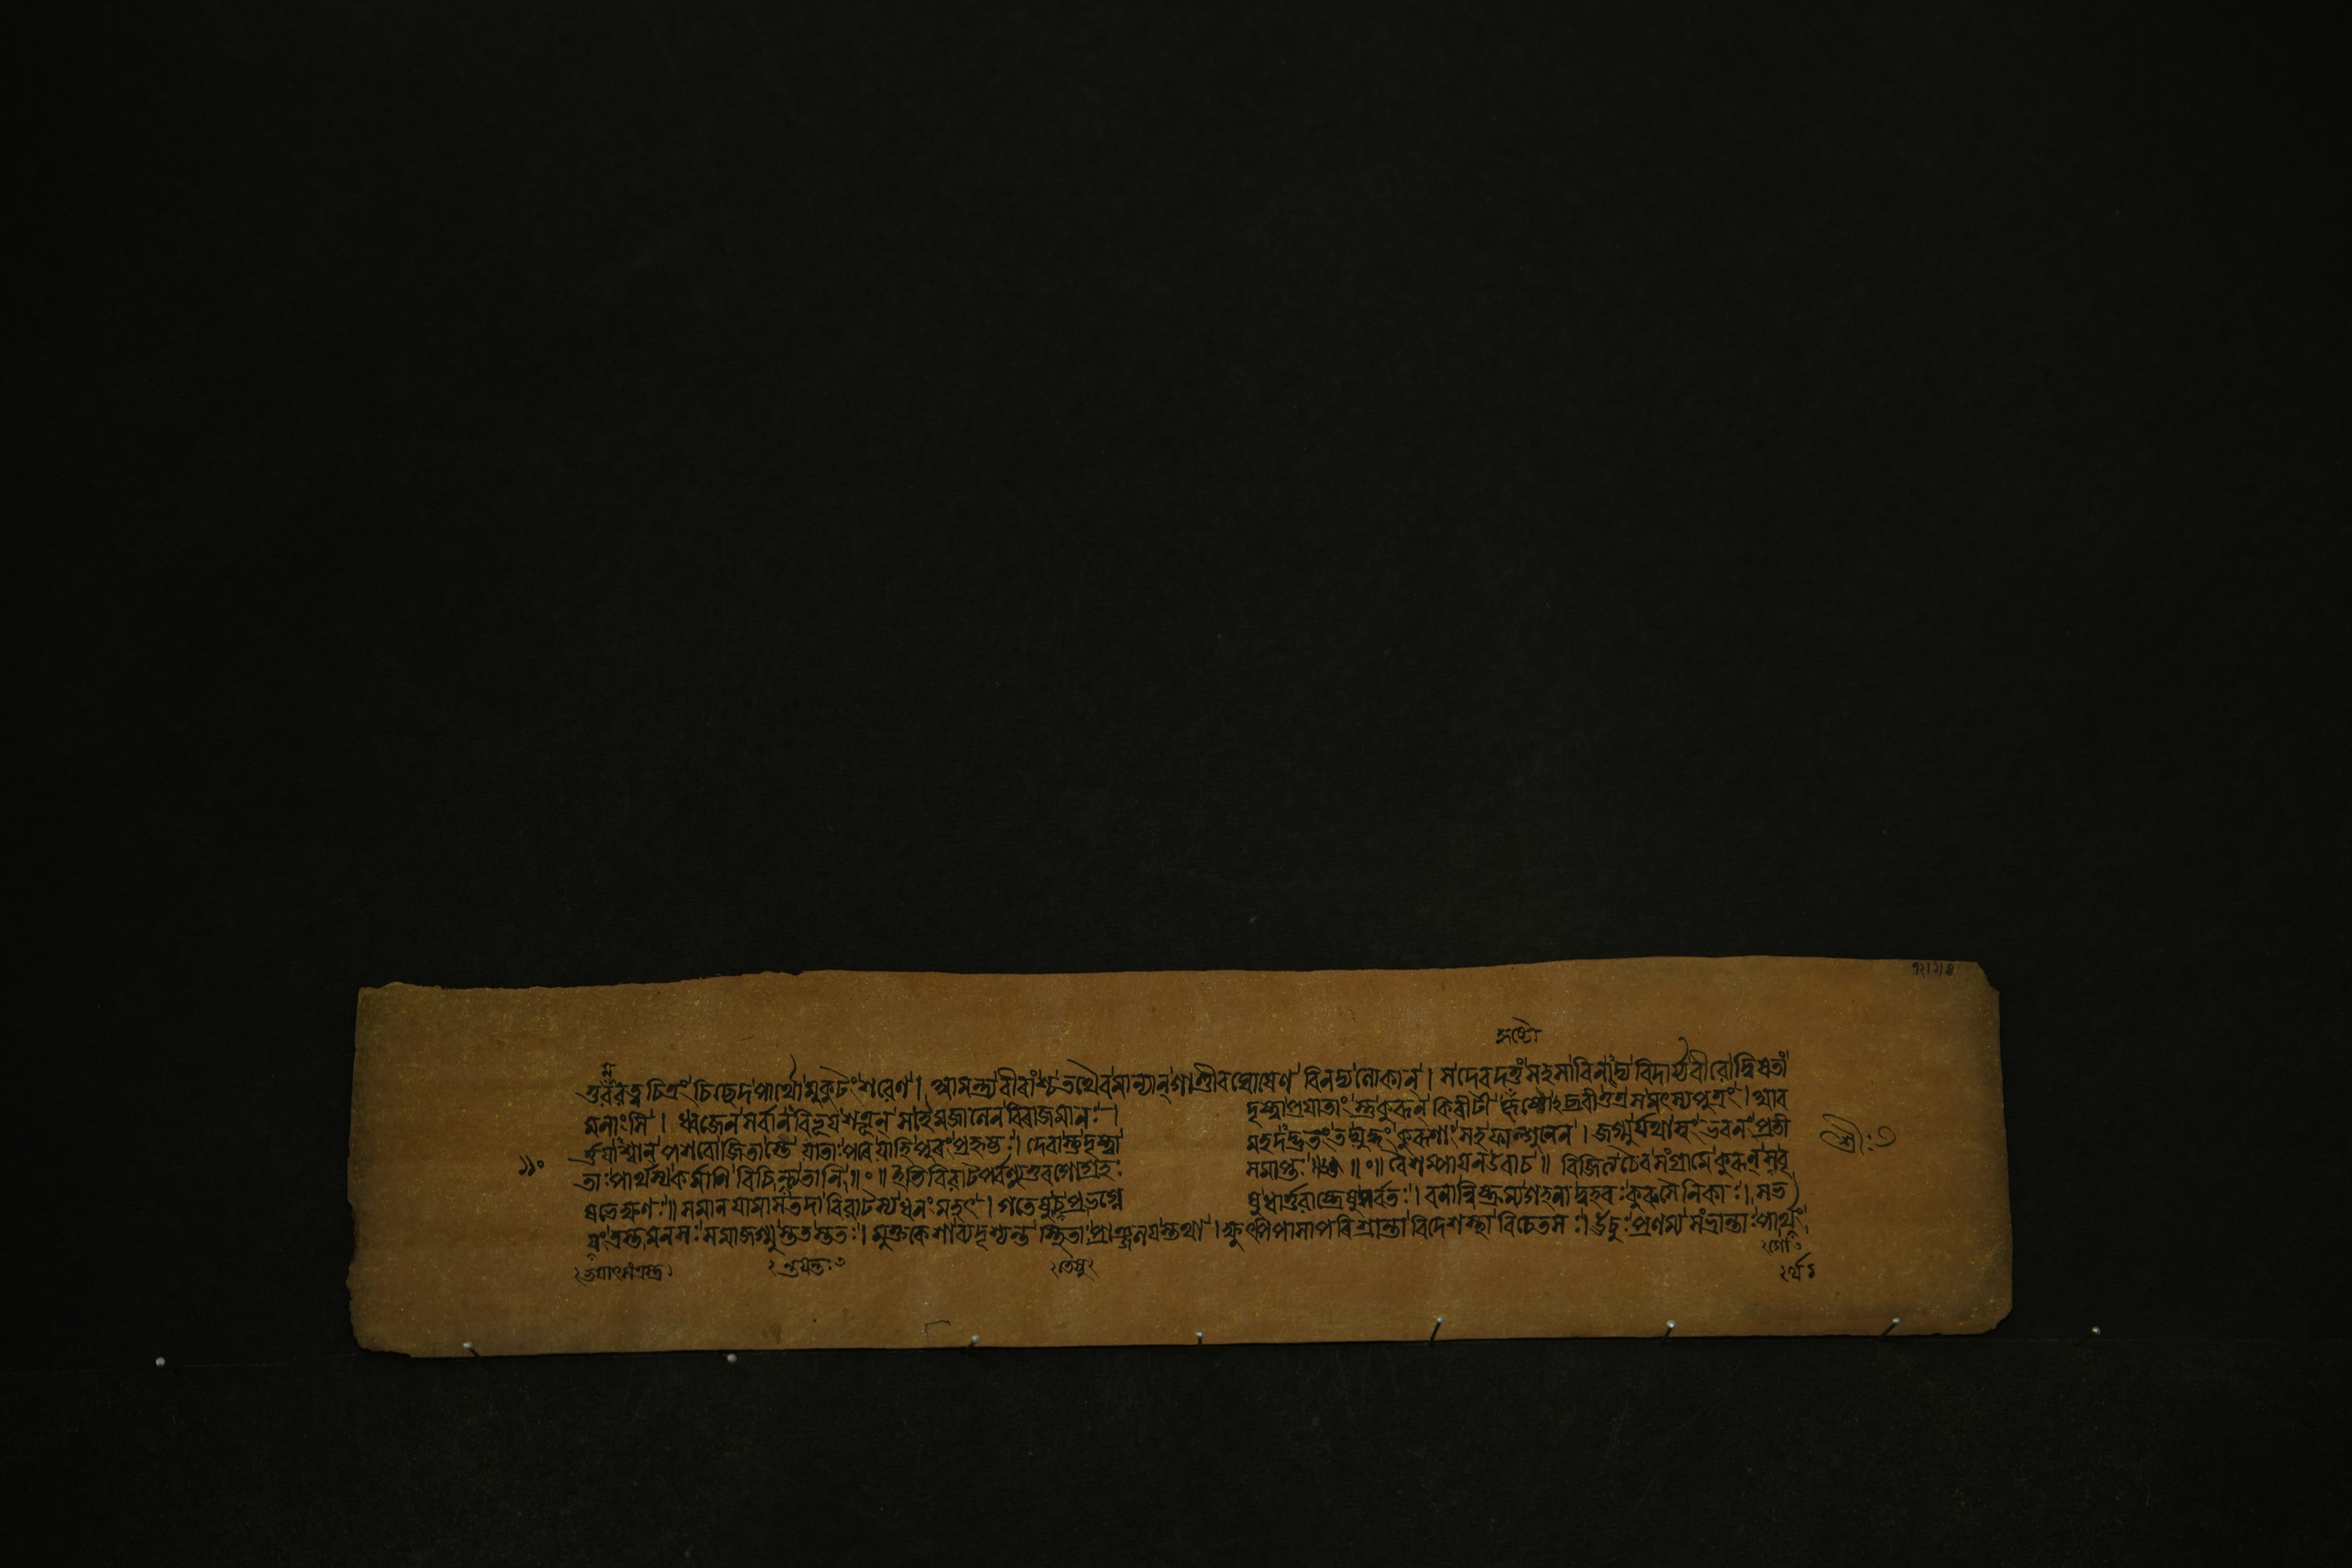 হৃষ্টো
তুরবরত্ন চিত্রং চিচ্ছেদ পার্থো মুকুটং শরেণ । আমন্ত্র্য বীরাংশ্চ তথৈব মান্যান্ গাণ্ডীবঘোষেণ বিনদ্য লোকান্ । স দেবদত্তং সহসা বিনাদ্য বিদার্য্য বীরো দ্বিষতাং
মনাংসি । ধ্বজেন সর্বান বিভূয় শত্রূন্ স হেমজালেন বিরাজমানঃ । দৃষ্ট্বা প্রযাতাং স্তু কুরূন কিরীটী হৃষ্টোঽব্রবীত্তত্র স মৎস্যপুত্রং । আব
র্ত্তয়াশ্বান পশবো জিতাস্তে যাতাঃ পরে যাহি পুরং প্রহৃষ্টঃ । দেবাস্তু দৃষ্ট্বা মহদদ্ভুতং তদ্যুদ্ধং কুরূণাং সহ ফাল্গুনেন । জগ্মুর্যথাস্বং ভবনং প্রতী
তাঃ পার্থস্য কর্মাণি বিচিন্তয়ন্তঃ ॥ ॰ ॥ ইতি বিরাটপর্বণ্যুত্তরগোগ্রহঃ সমাপ্তঃ ॥ ॰ ॥ বৈশম্পায়ন উবাচ ॥ বিজিত্য চৈব সংগ্রামে কুরূন্ স বৃ
ষভেক্ষণঃ ॥ সমানযামাস তদা বিরাটস্য ধনং মহৎ । গতেষু চ প্রভগ্নে ষু ধার্ত্তরাষ্ট্রেষু সর্বতঃ । বনান্নিষ্ক্রম্য গহনাদ্বহবঃ কুরুসৈনিকাঃ । সভ
যং ত্রস্তমনসঃ সমাজগ্মুস্ততস্ততঃ । মুক্তকেশা ব্যদৃশ্যন্ত স্থিতাঃ প্রাঞ্জলযস্তথা । ক্ষুৎপিপাসাপরিশ্রান্তা বিদেশস্থা বিচেতসঃ । ঊচুঃ প্রণম্য সংভ্রান্তাঃ পার্থং
ভযাৎসংত্রস্ত
ন্তযন্তঃ
তেষু
র্থ
শ্রীঃ